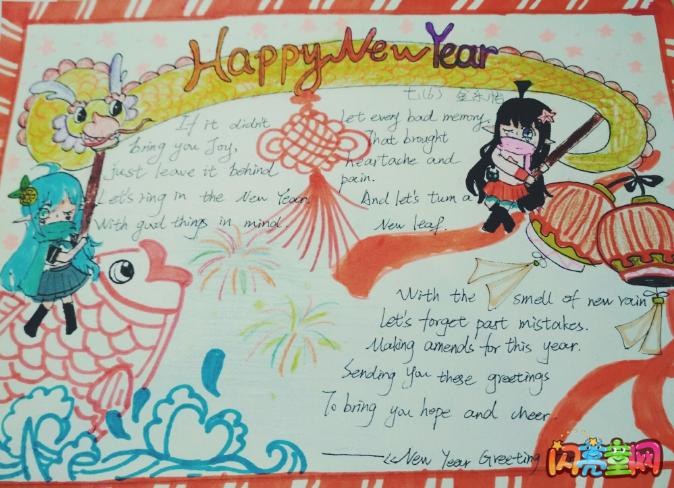 Happy New Year
七(16) 金乐怡
If it didn't
bring you Joy,
just leave it behind
Let's ring in the New Year.
With good things in mind.
Let every bad memory,
That brought
heartache and
pain.
And let's turn a
New leaf.
With the smell of new rain
Let's forget past mistakes.
Making amends for this year.
Sending you these greetings
To bring you hope and cheer.
——《New Year Greeting
闪亮童网